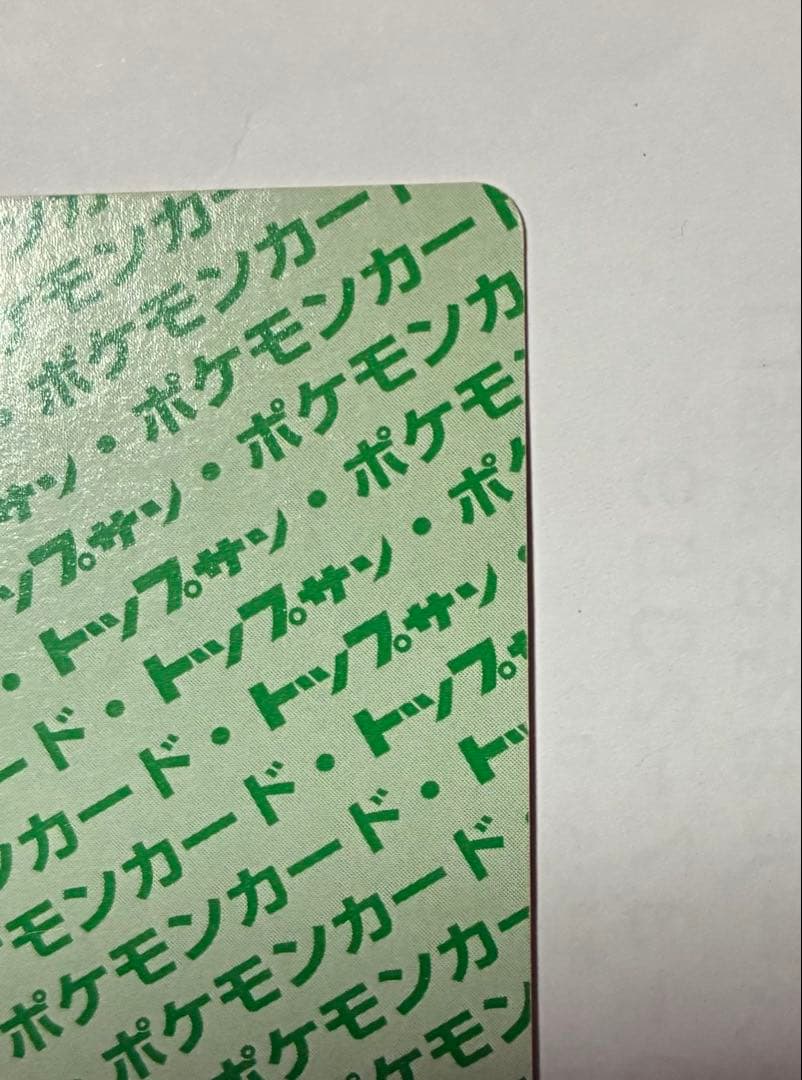 ンカ
ケモンカー
・ポケモンカード
サン・ポケモンカード
ップサン・ポケモンカ
・トップサン・ポケモ
ード・トップサン・ポ
ンカード・トップサン・
モンカード・トップサ
ポケモンカード・トッ
・ポケモンカード・
ポケモンカー
ケモン